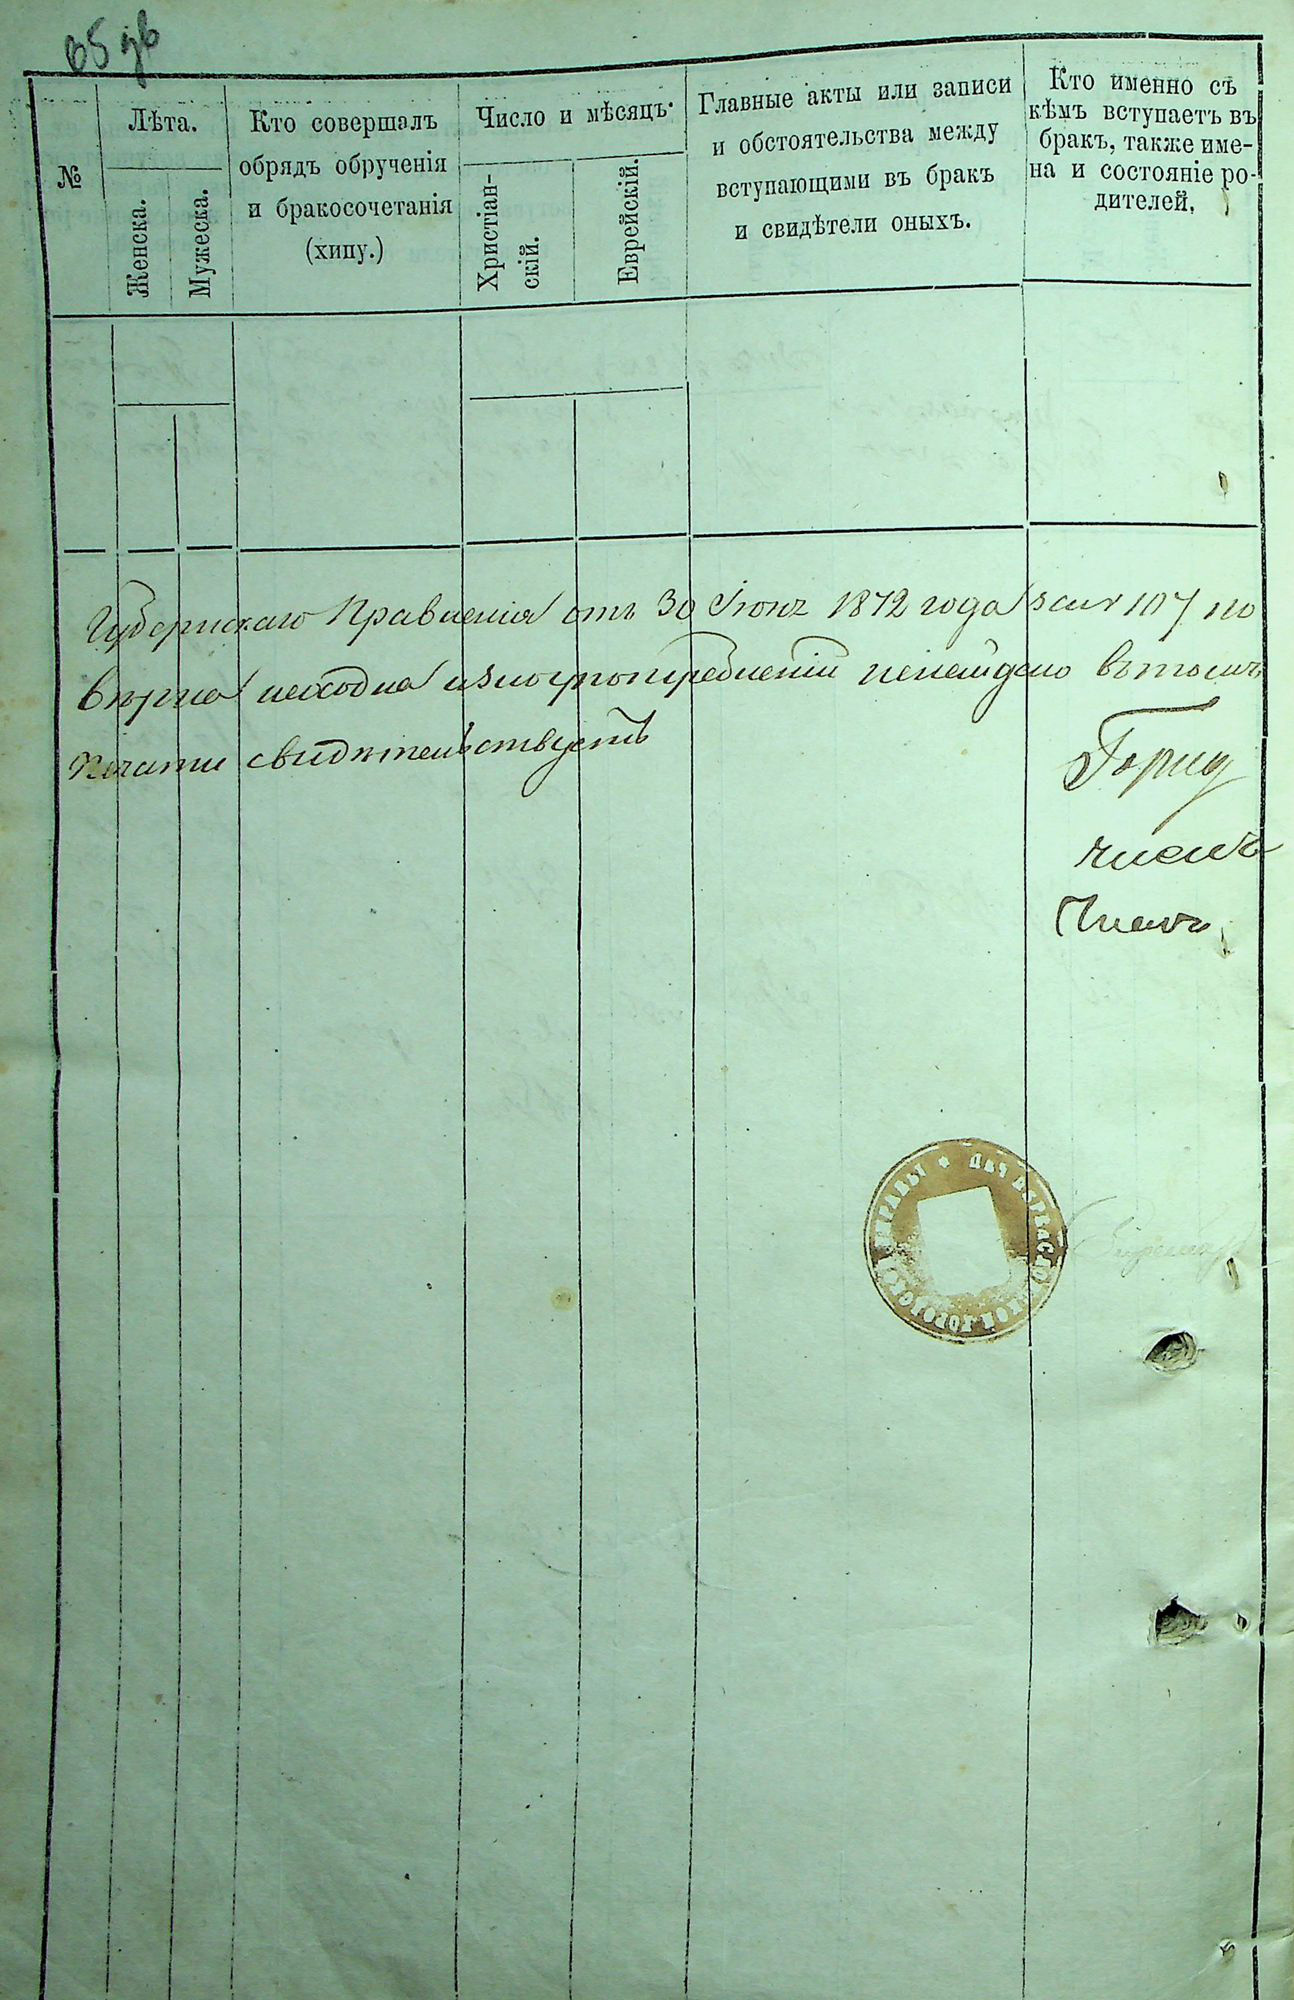 №
Лѣта.
Женска.
Мужеска.
Кто совершалъ
обрядъ обрученія
и бракосочетанія
(хипу.)
Число и мѣсяцъ.
Христіан-
скій.
Еврейскій.
Главные акты или записи
и обстоятельства между
вступающими въ бракъ
и свидѣтели оныхъ.
Кто именно съ
кѣмъ вступаетъ въ
бракъ, также име-
на и состояніе ро-
дителей.
Губернскаго Правленія отъ 30 Іюня 1872 года за № 107 по
вѣрна и злоупотребленій ненайдено въ томъ
печати свидѣтельствуетъ
Членъ